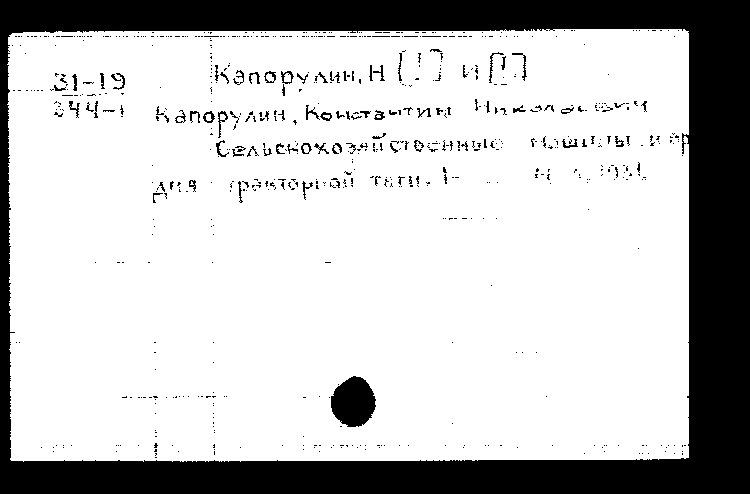 31-19 Капорулин, Н [!] и [!]
344-1 Капорулин, Константин Николаевич
Сельскохозяйственные машины и ор
для тракторной тяги. 1- М. 1931